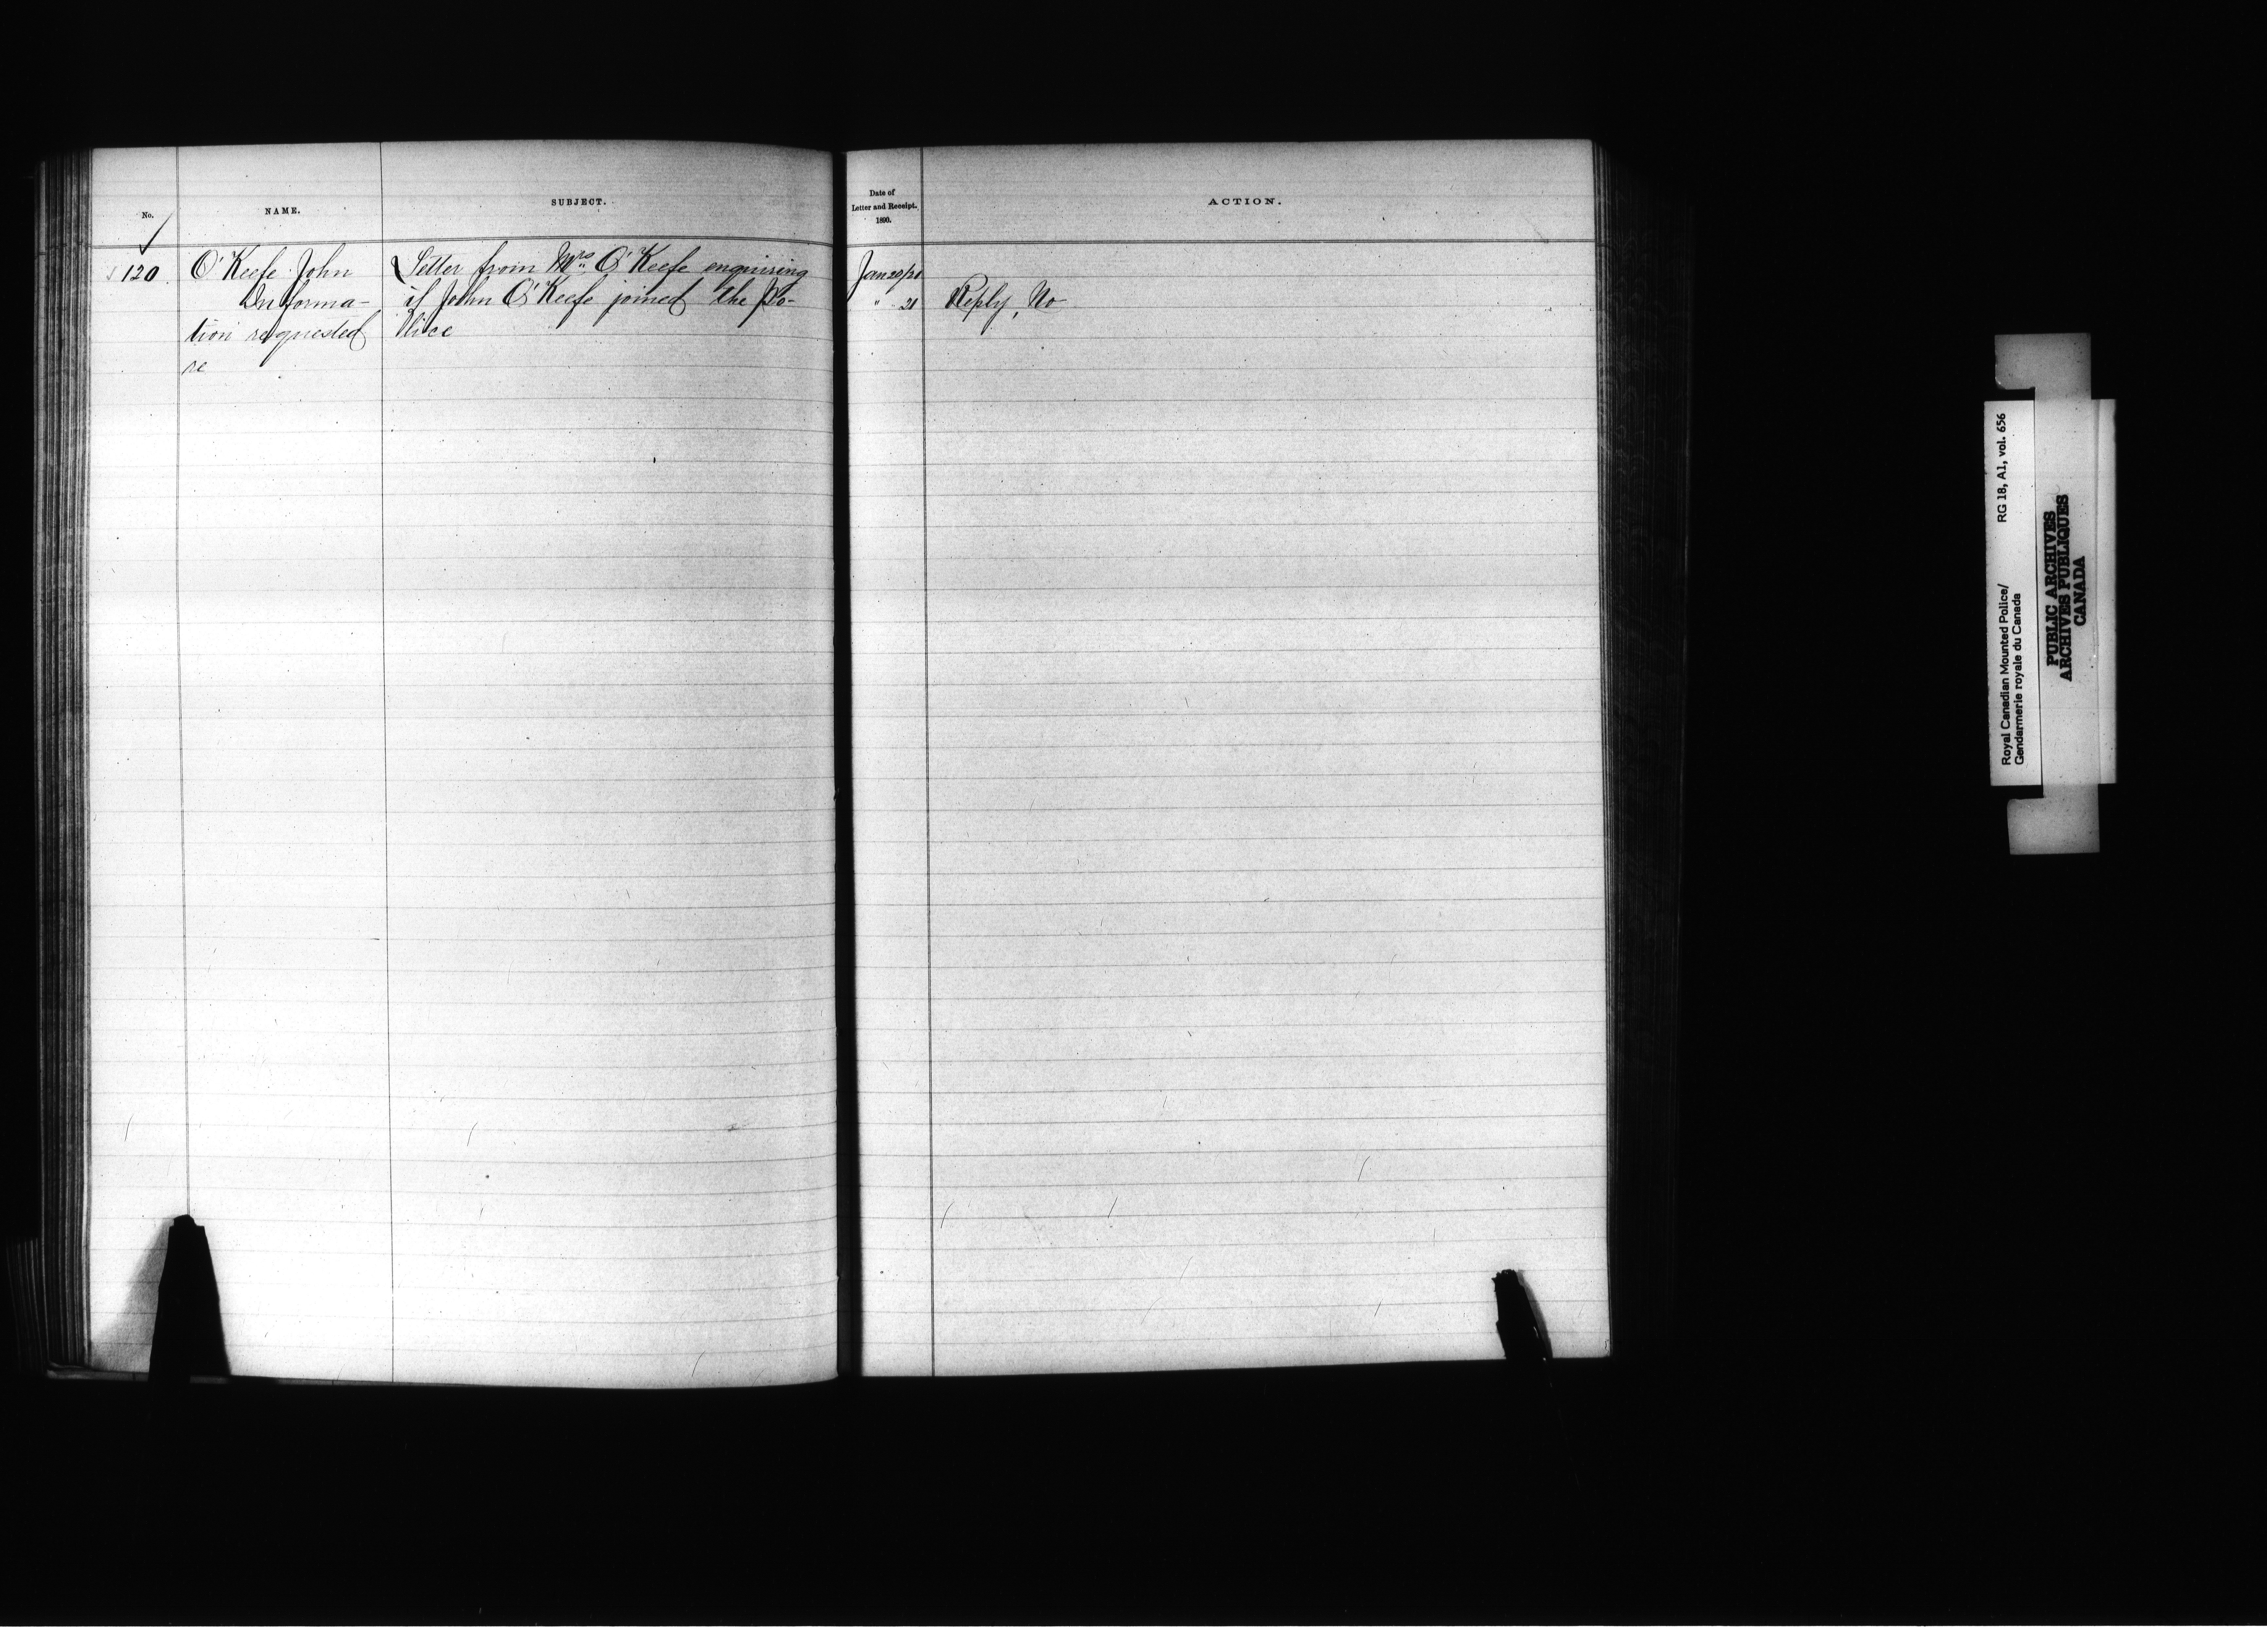 No.
NAME.
SUBJECT.
Date of
Letter and Receipt.
1890.
ACTION.
120
O'Keefe John
Informa-
tion requested
re
Letter from Mrs O'Keefe enquiring
if John O'Keefe joined the Po-
lice
Jan 20/21
" 21
Reply, No
Royal Canadian Mounted Police/
Gendarmerie royale du Canada
RG 18, A1, vol. 656
PUBLIC ARCHIVES
ARCHIVES PUBLIQUES
CANADA